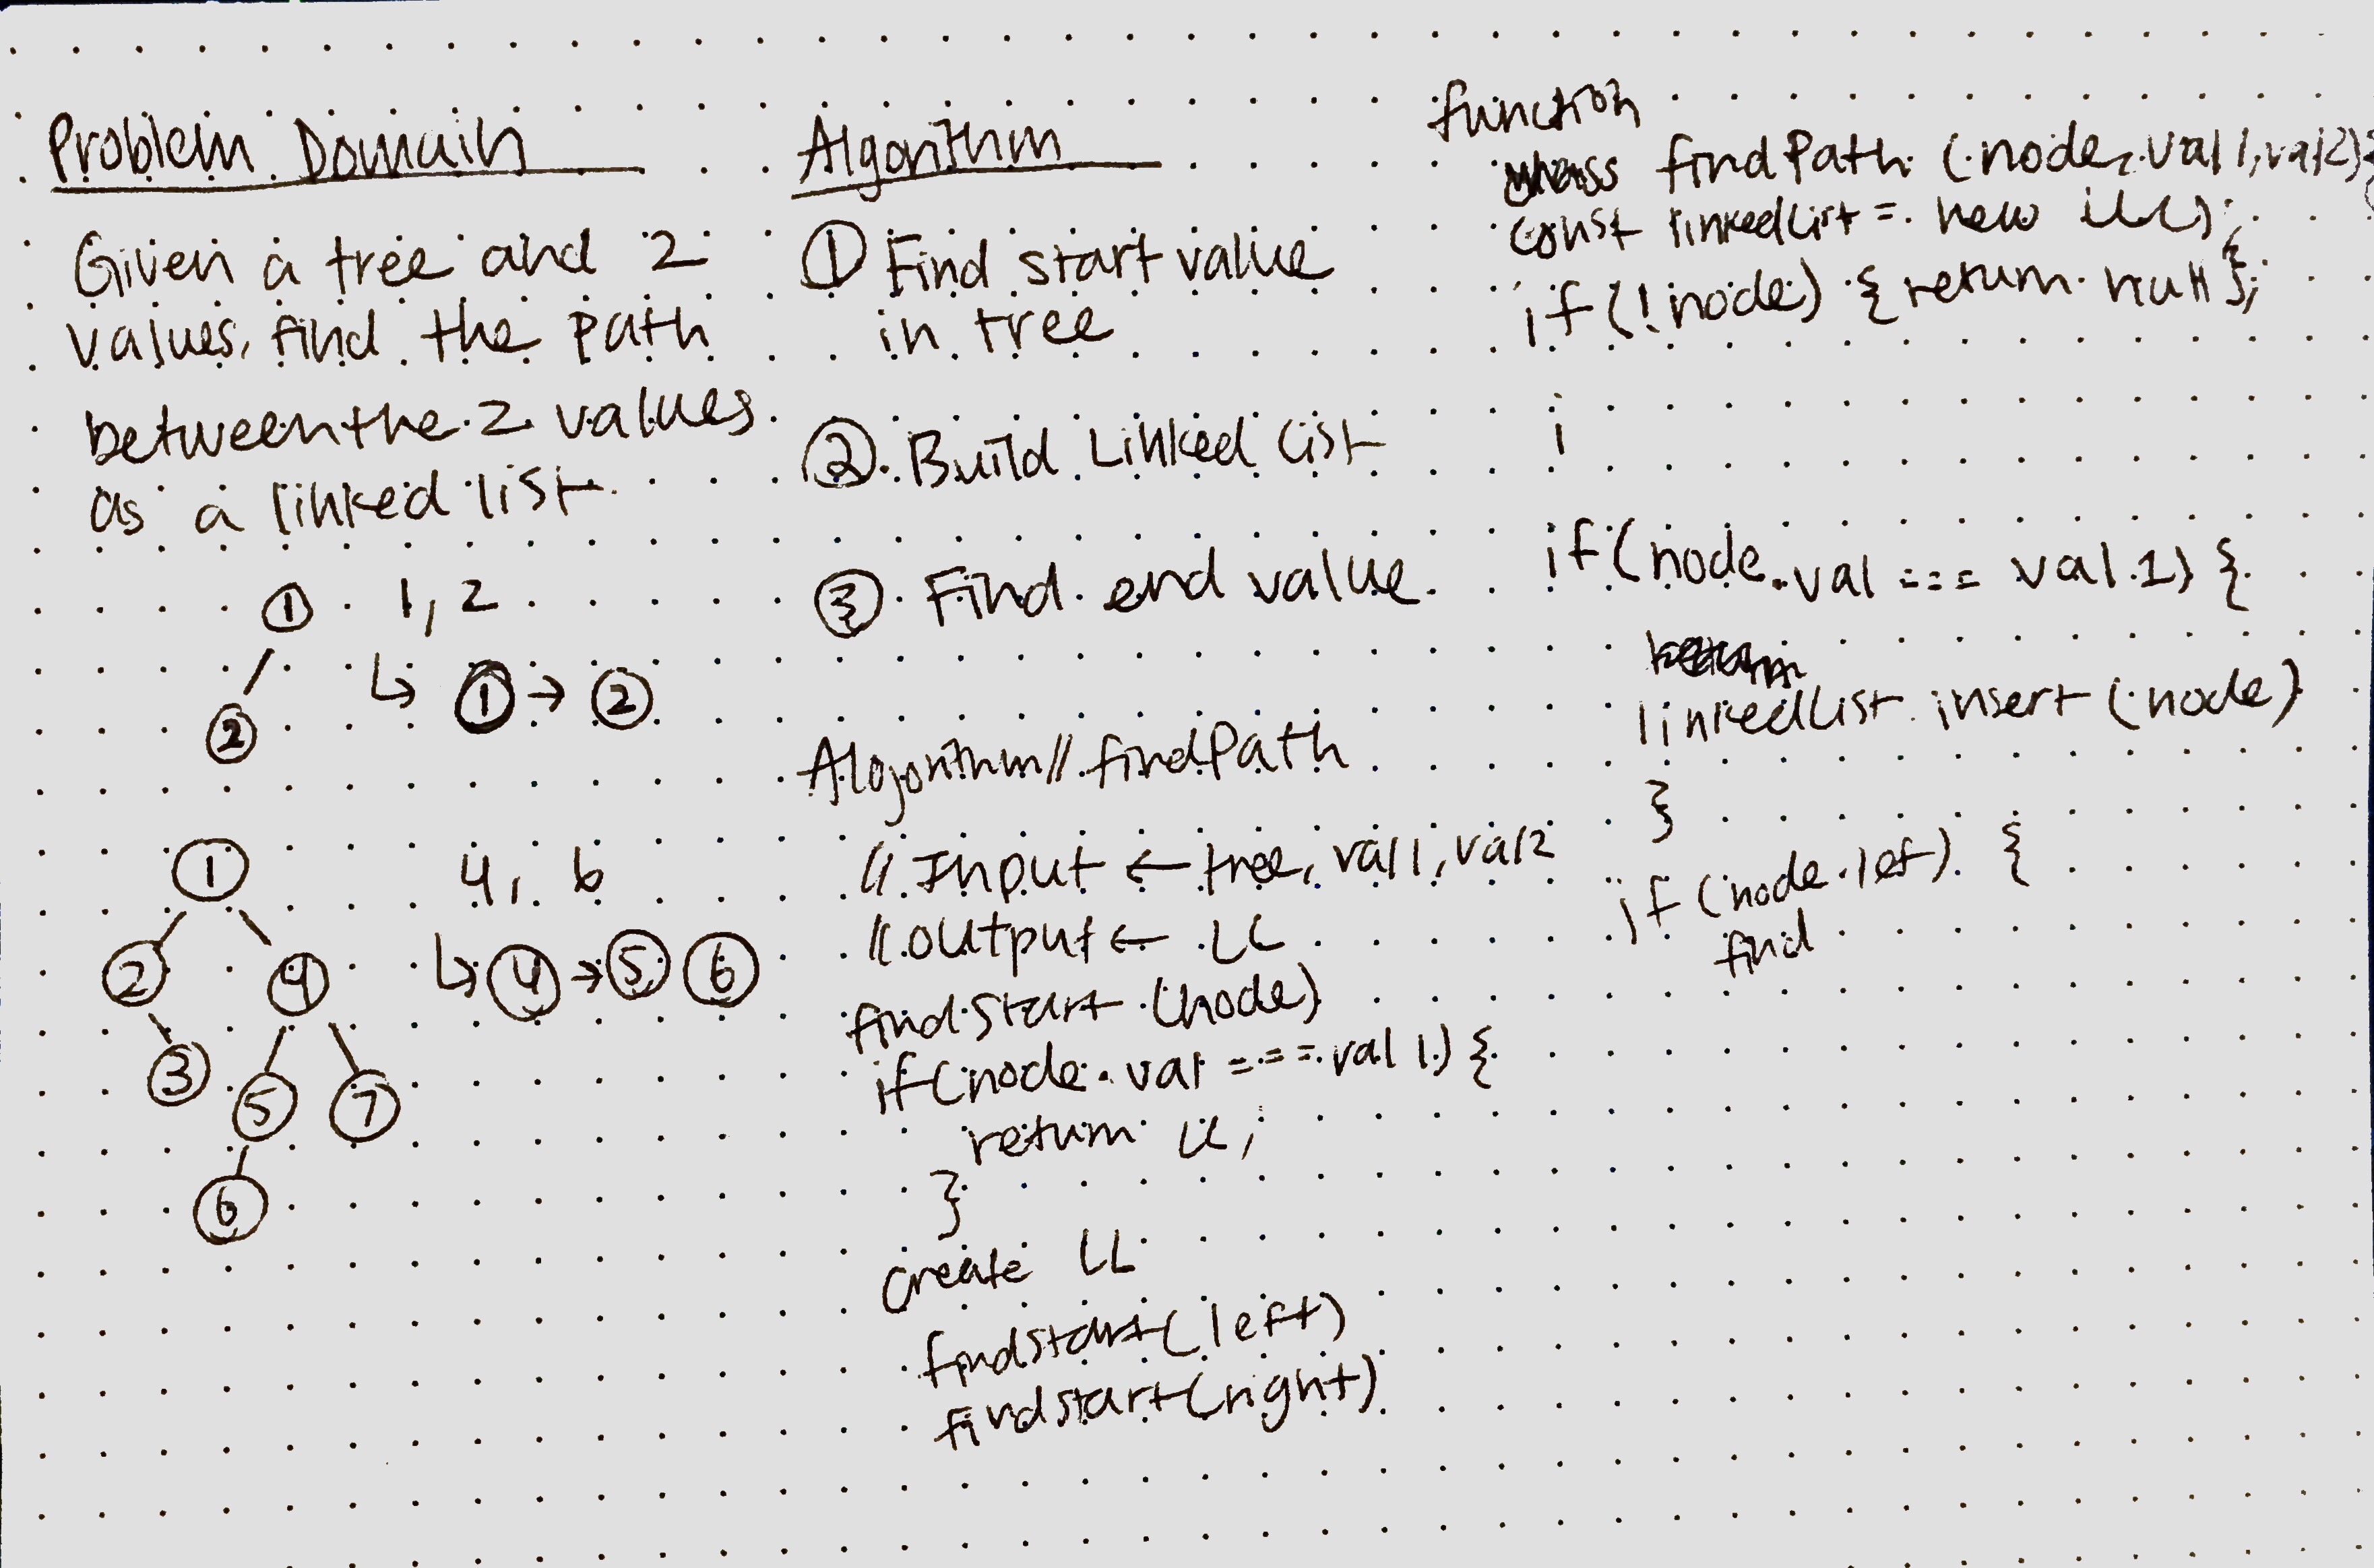 Problem Domain
Given a tree and 2
values, find the path
between the 2 values
as a linked list
1 1, 2
↳ 1 → 2
2
1 4, 6
2 4 ↳ 4 → 5 6
3 5 7
6
Algorithm
1 Find start value
in tree
2 Build Linked List
3 Find end value
Algorithm // findPath
// Input ← tree, val1, val2
// output ← LL
findStart (node)
if(node.val === val1) {
return LL;
}
create LL
findstart(left)
findstart(right)
function
findPath (node, val1, val2) {
const linkedList = new LL();
if(!node) { return null };
if(node.val === val1) {
linkedList.insert(node)
}
if(node.left) {
find